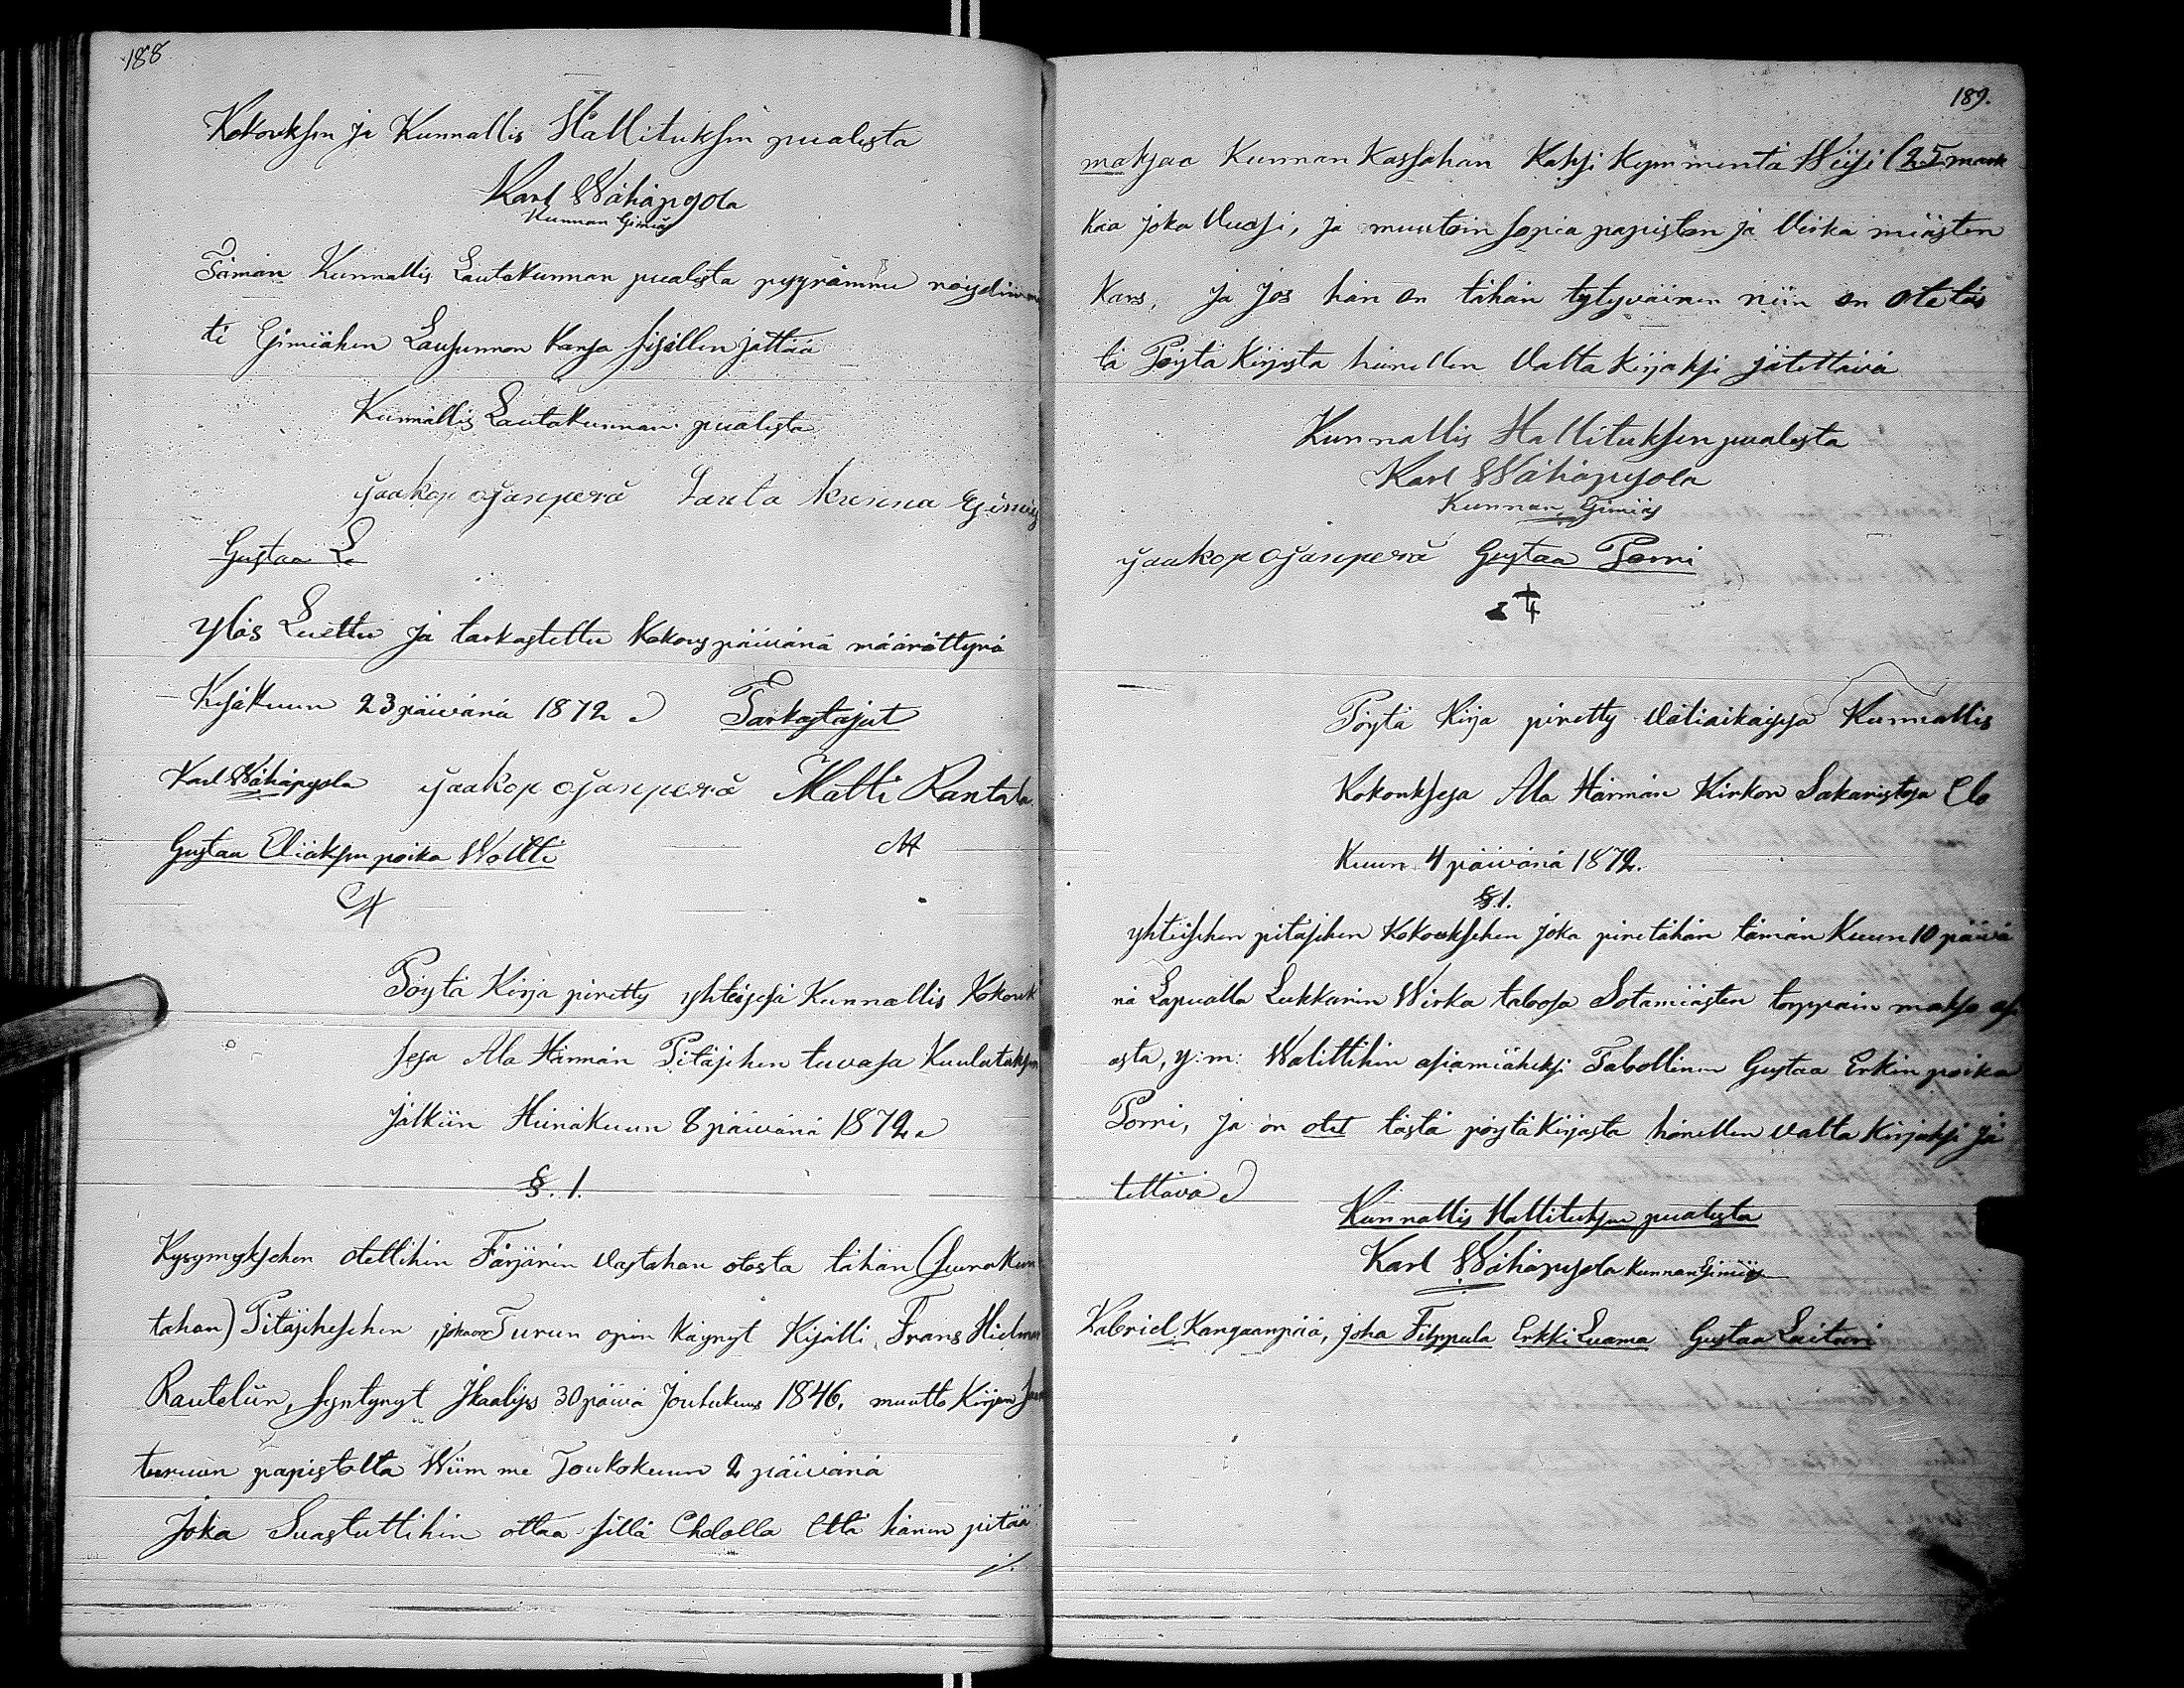 188
Kokouksen ja Kunnallis Hallituksen puolesta
Karl Wähäpyola
Kunnan Esimiäs
Tämän Kunnallis Lautakunnan puolesta pyyrämme nöydimm
ti Esimiähen Lausunnon kansa sisällen jättää
Kunnallis Lautakunnan puolesta
jaakop ojanperä Lauta kunna Esimiäs
Gustaa L
ylös Luettu ja tarkastettu Kokous päivänä määrättynä
Kesäkuun 23 päivänä 1872 Tarkastajat
Karl Wähäpyola jaakop ojanperä Matti Rantala
Gustaa Eliaksen poika Woltti
Pöytä Kirja piretty yhteisesä Kunnallis Kokouk
sesa Ala Härmän Pitäjehen tuvasa Kuulutuksen
jälkiin Heinäkuun 8 päivänä 1872
§. 1.
Kysymyksehen otettihin Färjärin vastahan otosta tähän (seurakun
tahan) Pitäjehesehen, jokaon Turun opin käynyt Kisälli, Frans Hielman
Rauteliin, syntynyt Ikaalises 30 päivä Joulukuus 1846, muutto Kirjan saanu
turuun papistolta Wiim me Toukokuun 2 päivänä
Joka Suastuttihin ottaa sillä Ehdolla Että hänen pitää
189.
maksaa Kunnan Kassahan Kaksi kymmentä Wiisi (25 mark
kaa joka Vuosi, ja muutoin sopia papiston ja Virka miästen
kans, ja jos hän on tähän tytyväinen niin on ote täs
tä Pöytä Kirjasta hänellen Valta kirjaksi jätettävä
Kunnallis Hallituksen puolesta
Karl Wähäpyola
Kunnan Esimiäs
jaakop ojanperä Gustaa Porri
Pöytä Kirja piretty Väliaikaisesa Kunnallis
Kokouksesa Ala Härmän Kirkon Sakaristosa Elo
Kuun 4 päivänä 1872.
§.1.
yhteisehen pitäjehen Kokouksehen joka piretähän tämän Kuun 10 päivä
nä Lapualla Lukkarin Wirka talosa Sotamiästen torppain makso asi
asta, y:m: Walittihin asiamiäheksi Talollinen Gustaa Erkin poika
Porri, ja on otet tästä pöytäkirjasta hänellen valta kirjaksi jä
tettävä
Kunnallis Hallituksen puolesta
Karl Wähäpyola Kunnan Esimiäs
Kabriel Kangaanpää, Joha Filppula Erkki Luama Gustaa Laituri